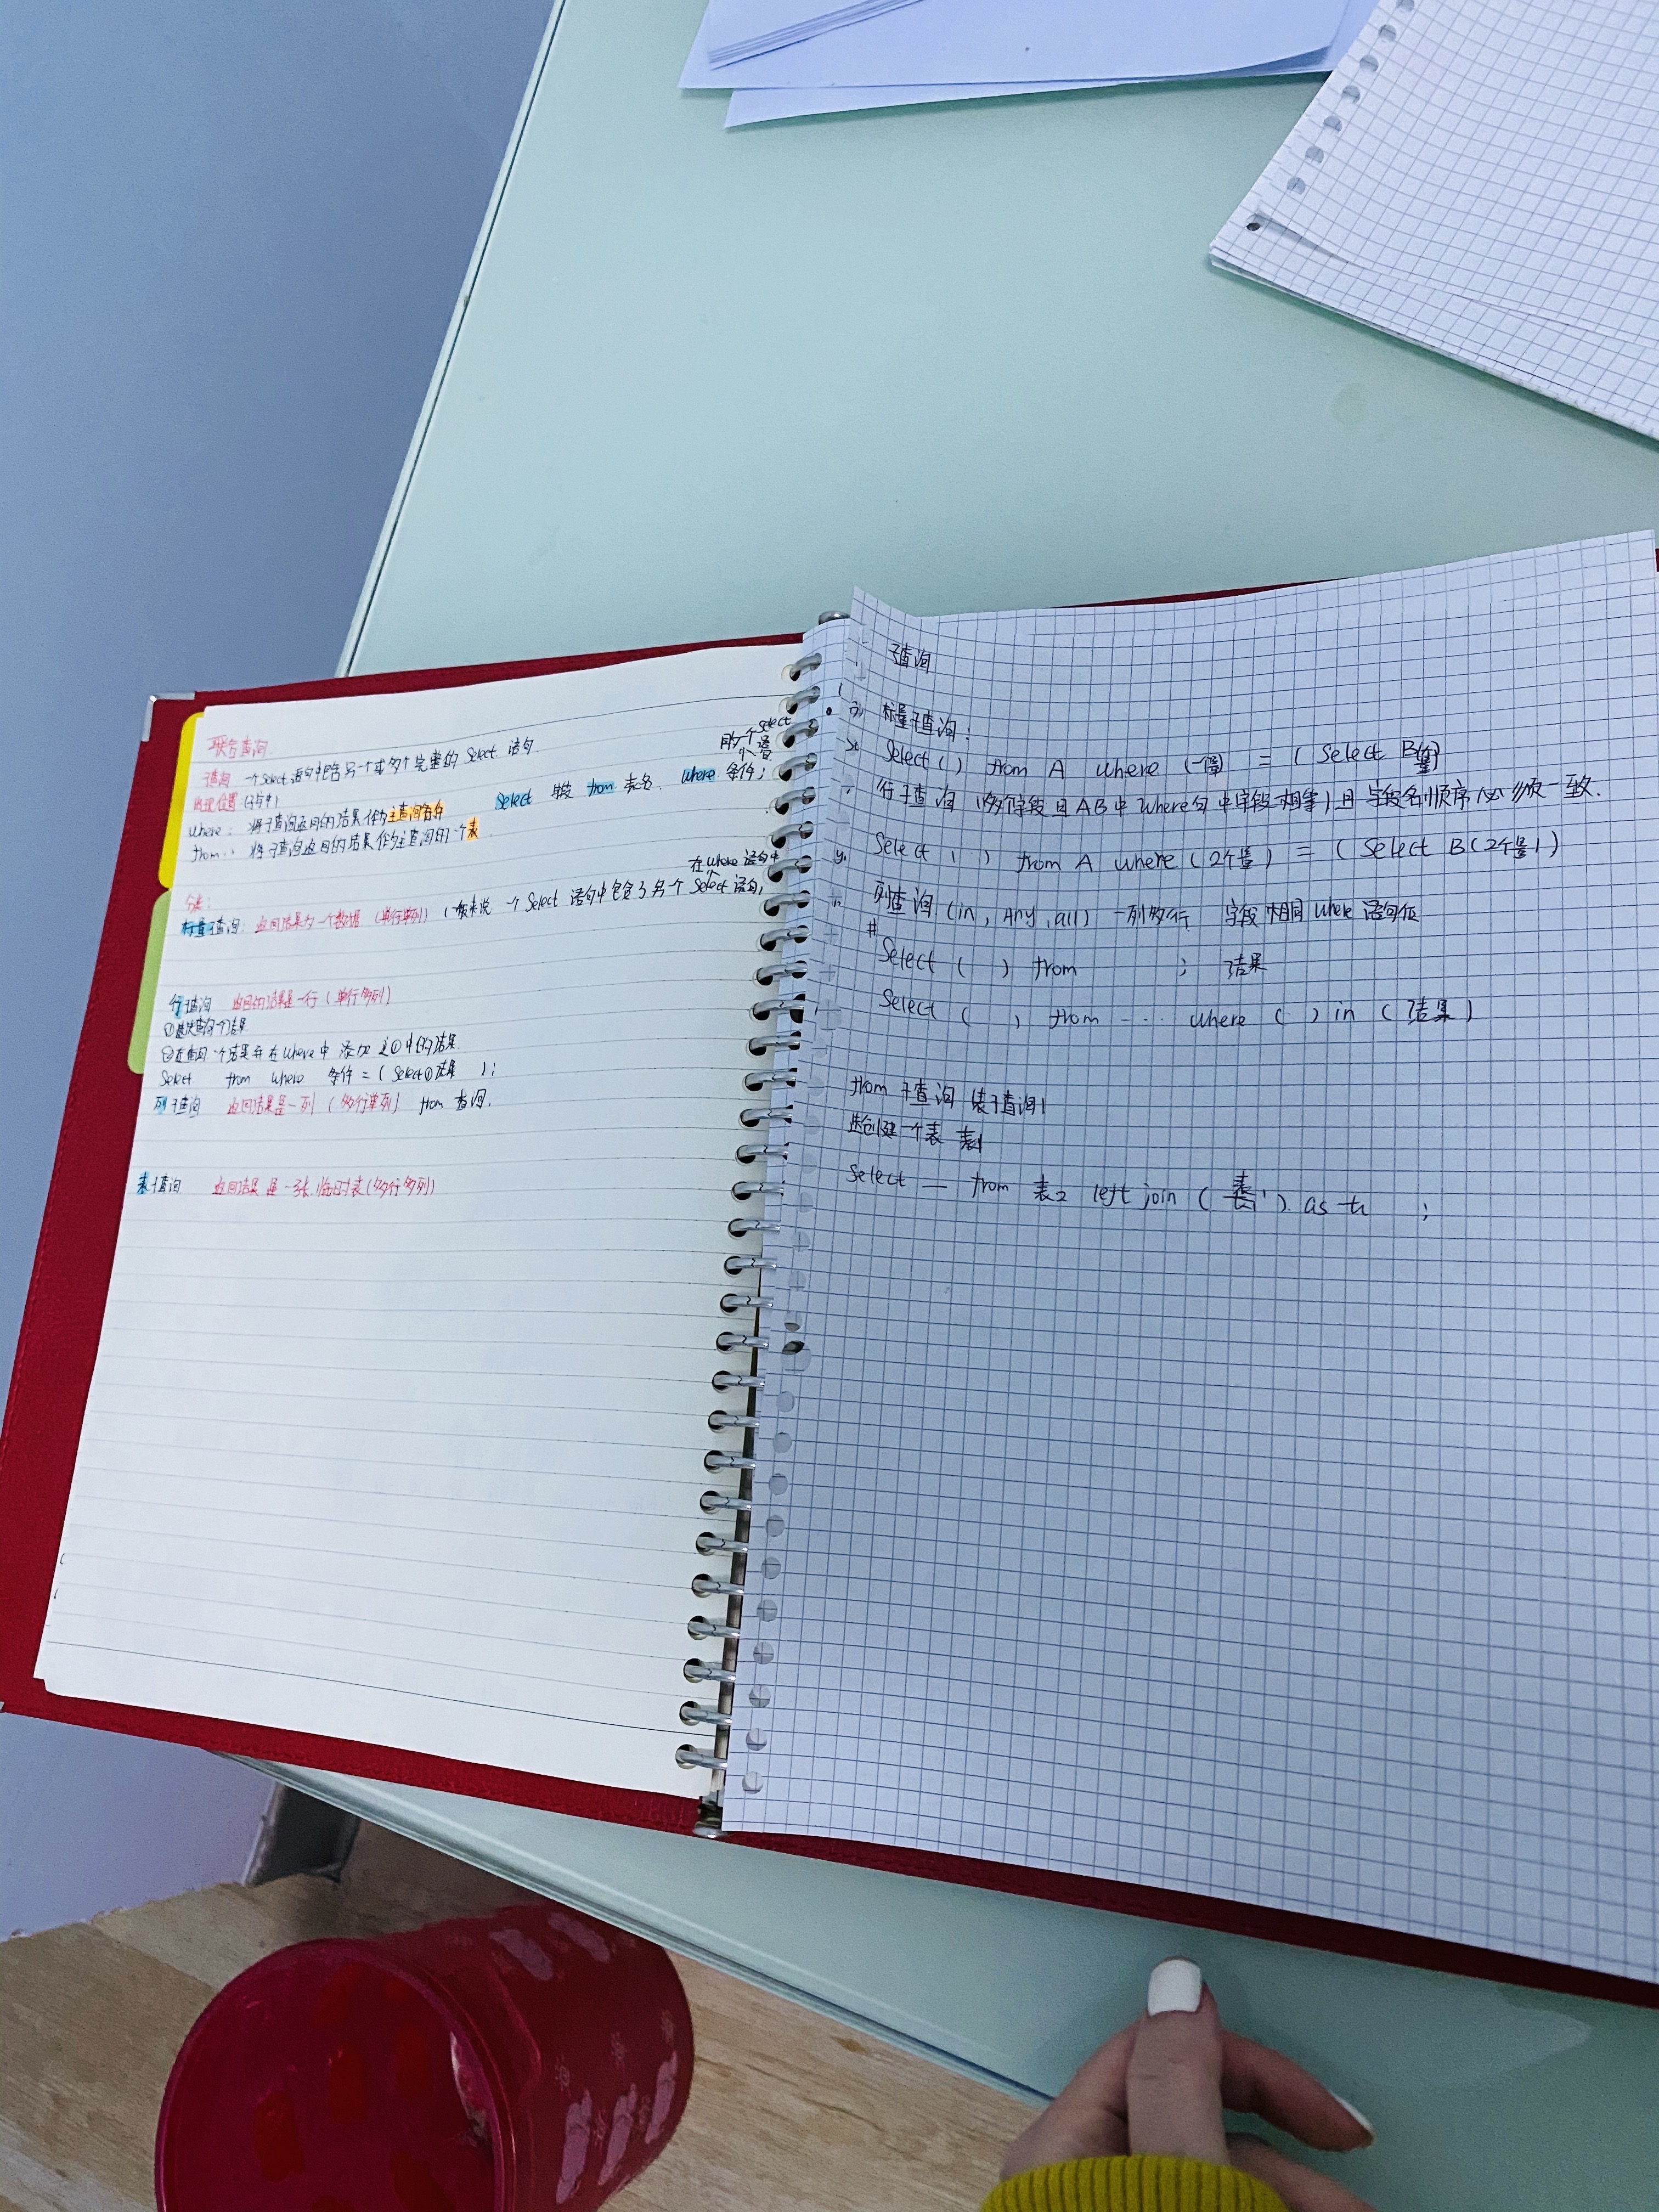 联合查询
子查询 一个select语句中包含另一个或多个完整的select语句
出现位置
where: 将子查询返回的结果作为主查询条件
from: 将子查询返回的结果作为主查询的一个表
select
select 字段 from 表名 where 条件;
分类:
在where语句中
标量子查询: 返回结果为一个数据(单行单列)(一般来说 一个select语句中包含了另个select语句)
行子查询 返回的结果是一行(单行多列)
②在查询一个结果并在where中添加之①中的结果
Select from where 条件=(Select①结果 );
列子查询 返回结果是一列(多行单列) from 查询.
表子查询 返回结果是一张临时表(多行多列)
子查询
标量子查询:
Select ( ) from A where (一个量) = ( Select B
行子查询 (多个字段且AB中where句中字段相等)且字段名顺序必须一致.
Select ( ) from A where (2个量) = ( Select B (2个量))
列查询 (in, Any, all) 一列多行 字段相同 where 语句值
# Select ( ) from ; 结果
Select ( ) from ... where ( ) in ( 结果 )
from 子查询 (表子查询)
先创建一个表 表1
Select — from 表2 left join ( 表1 ) as t1 ;